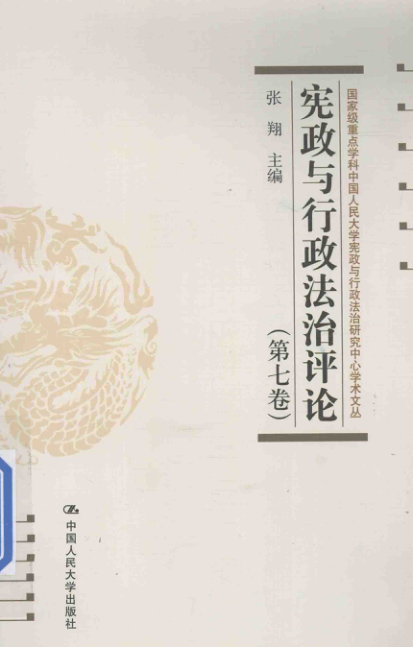 国家级重点学科中国人民大学宪政与行政法治研究中心学术文丛
宪政与行政法治评论
（第七卷）
张翔 主编
中国人民大学出版社